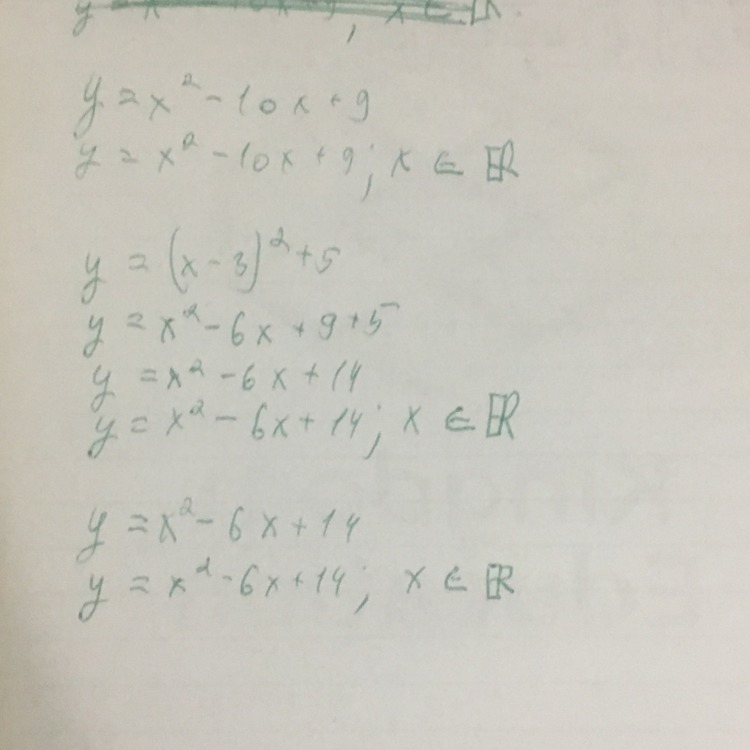 y = x² - 10x + 9
y = x² - 10x + 9; x ∈ ℝ
y = (x - 3)² + 5
y = x² - 6x + 9 + 5
y = x² - 6x + 14
y = x² - 6x + 14; x ∈ ℝ
y = x² - 6x + 14
y = x² - 6x + 14; x ∈ ℝ